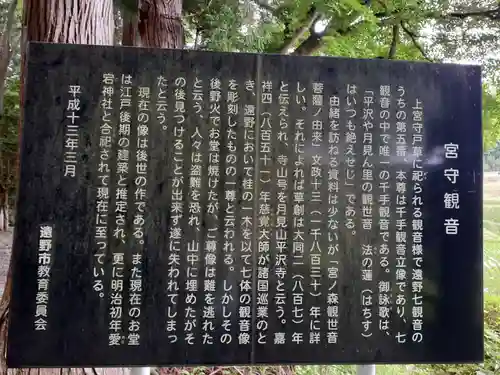 宮守観音
上宮守戸草に祀られる観音様で遠野七観音の
うちの第五番、本尊は千手観音立像であり、七
観音の中で唯一の千手観音である。御詠歌は、
「平沢や月見ん里の観世音　法の蓮（はちす）
はいつも絶えせじ」である。
由緒を訪ねる資料は少ないが「宮ノ森観世音
菩薩ノ由来」文政十三（一千八百三十）年に詳
しい。それによれば草創は大同二（八百七）年
と伝えられ、寺山号を月見山平沢寺と云う。嘉
祥四（八百五十一）年慈覚大師が諸国巡業のと
き、遠野において桂の一木を以て七体の観音像
を彫刻したものの一尊と云われる。しかしその
後野火でお堂は焼けたが、ご尊像は難を逃れた
と云う、人々は盗難を恐れ、山中に埋めたがそ
の後見つけることが出来ずに失われてしまっ
たと云う。
現在の像は後世の作である。また現在のお堂
は江戸後期の建築と推定され、更に明治初年愛
宕神社と合祀されて現在に至っている。
平成十三年三月
遠野市教育委員会